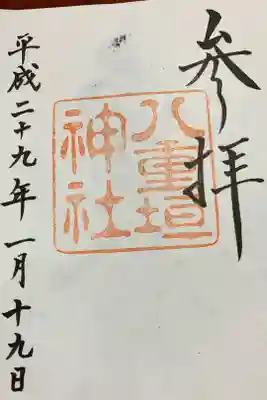 参拝
八重垣
神社
平成二十九年一月十九日